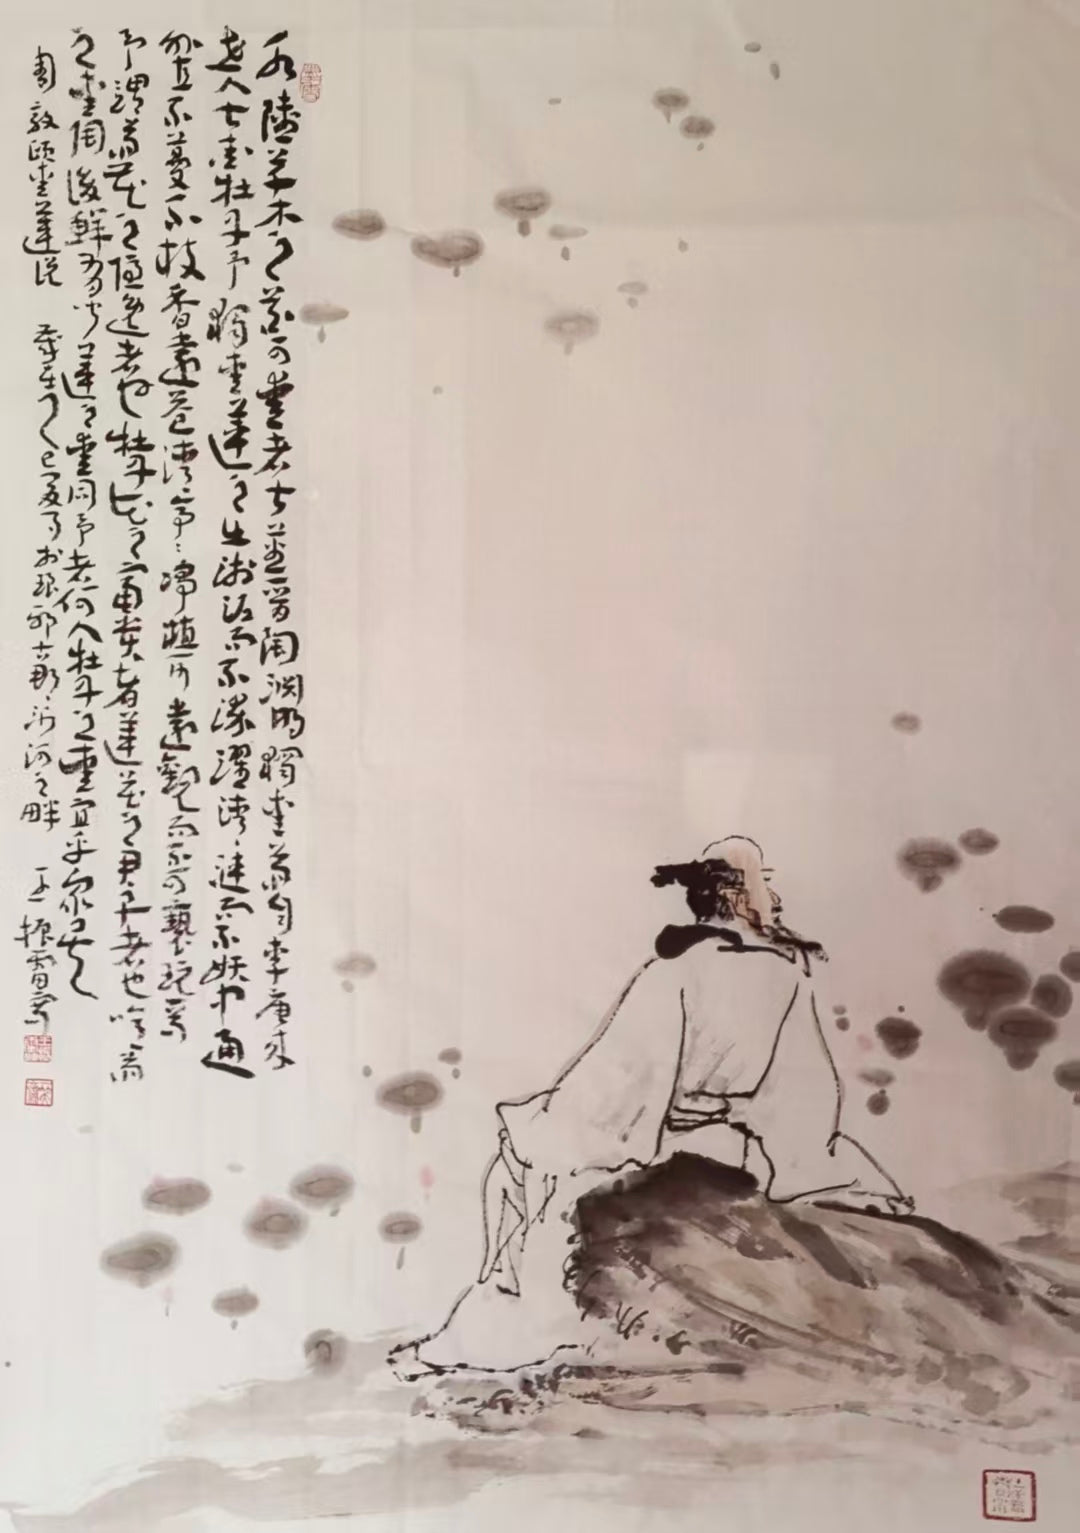 水陸草木之花可愛者甚蕃晉陶淵明獨愛菊自李唐來
世人甚愛牡丹予獨愛蓮之出淤泥而不染濯清漣而不妖中通
外直不蔓不枝香遠益清亭亭淨植可遠觀而不可褻玩焉
予謂菊花之隱逸者也牡丹花之富貴者蓮花之君子者也噫菊
之愛陶後鮮有聞蓮之愛同予者何人牡丹之愛宜乎眾矣
周敦頤愛蓮說 歲在乙巳夏月於琅琊古郡沂河之畔 王振寫